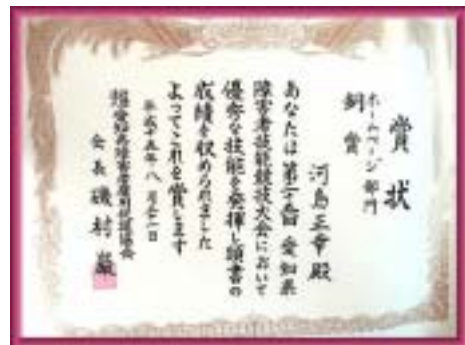 賞状
ホームページ部門
銅賞
河島正幸殿
あなたは第二十回愛知県
障害者技能競技大会において
優秀な技能を発揮し頭書の
成績を収められました
よってこれを賞します
平成十五年八月三十一日
愛知県障害者雇用促進協会
会長 磯村巖